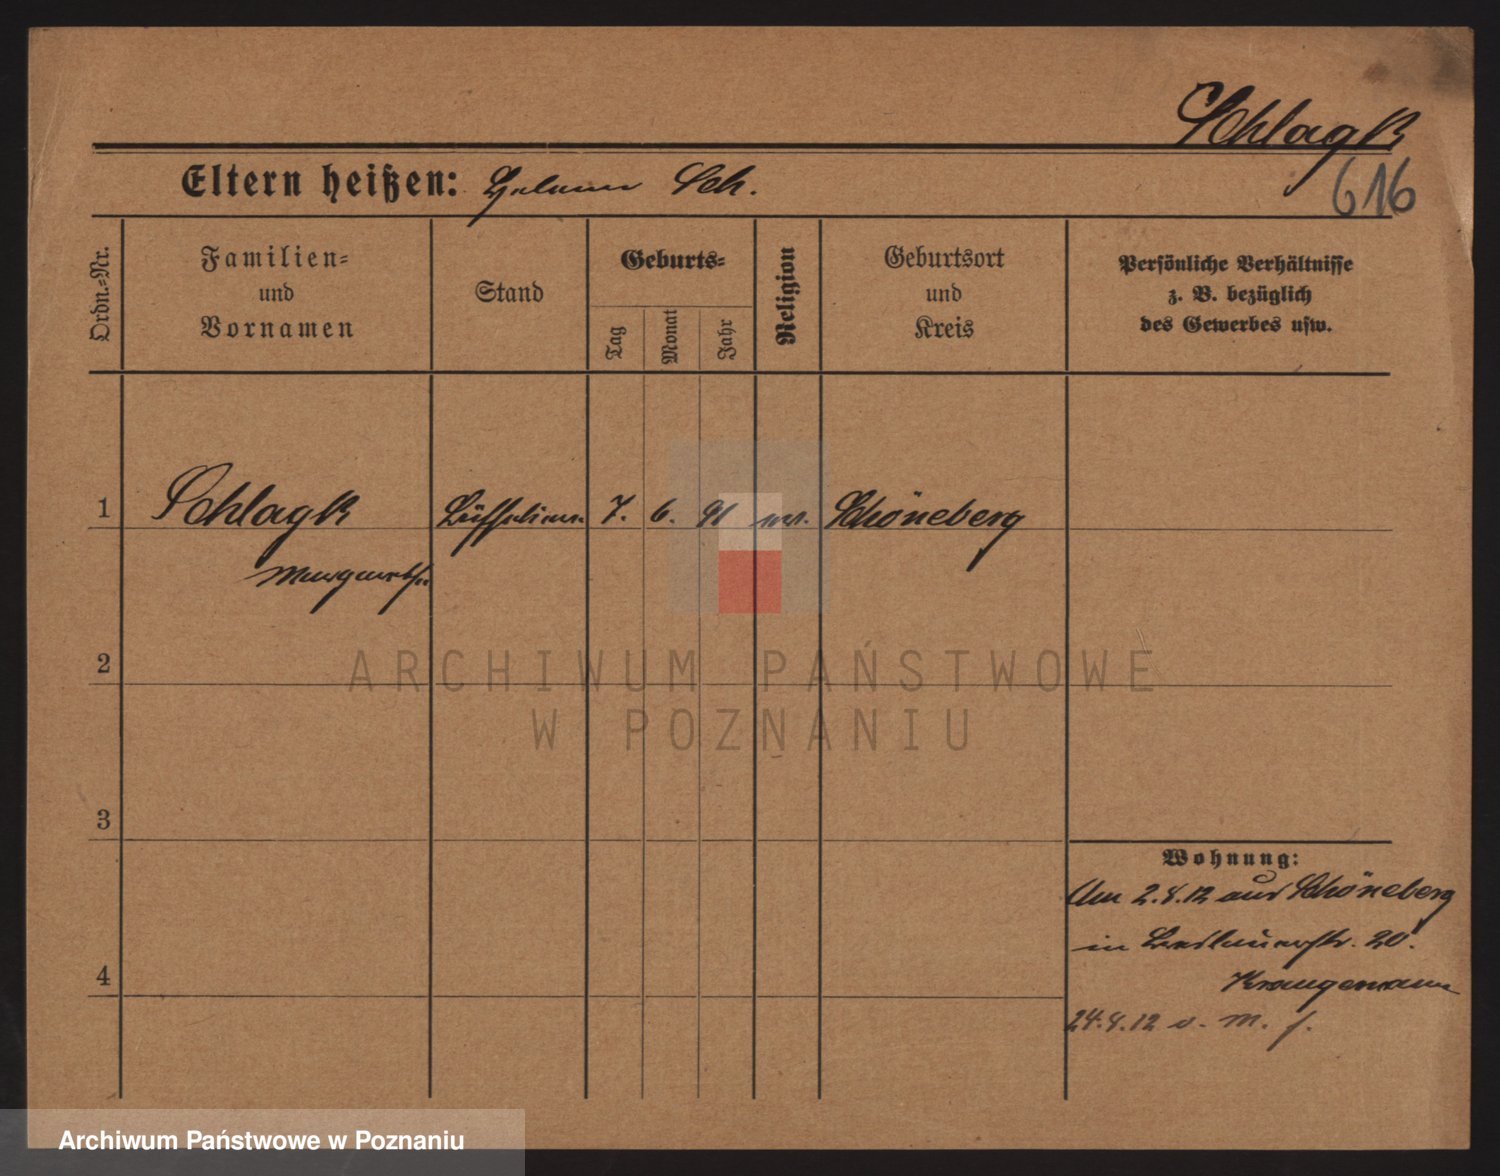 Schlagk
616
Eltern heißen: Sch.
Ordn.-Nr.
Familien-
und
Vornamen
Stand
Geburts-
Tag
Monat
Jahr
Religion
Geburtsort
und
Kreis
Persönliche Verhältnisse
z. B. bezüglich
des Gewerbes usw.
1 Schlagk 7. 6. 91 Schöneberg
Margarethe
2
3
4
Wohnung:
Am 2.4.12 aus Schöneberg
in Breslauerstr. 20.
24.4.12 v. M. f.
ARCHIWUM PAŃSTWOWE
W POZNANIU
Archiwum Państwowe w Poznaniu